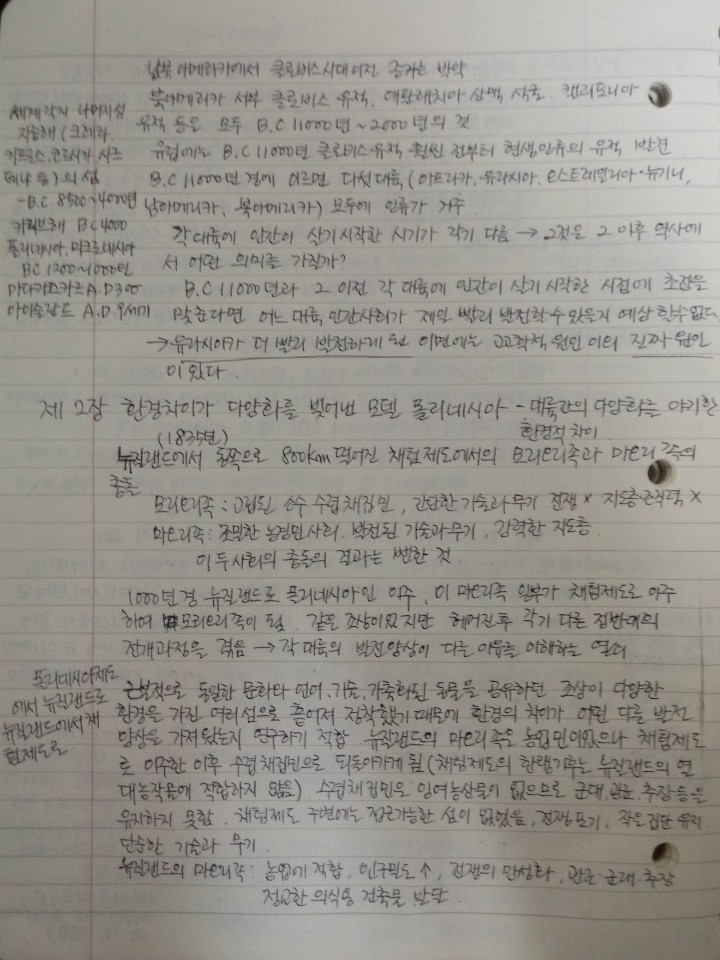 남북 아메리카에서 클로비스시대 이전 증거는 박약
북아메리카 서부 클로비스 유적, 애팔래치아 산맥 식굴, 캘리포니아
유적 등은 모두 B.C 11000년 ~ 2000년의 것
유럽에는 B.C 11000년 클로비스 유적 훨씬 전부터 현생인류의 유적 발견
B.C 11000년 경에 이르면 다섯대륙 (아프리카, 유라시아, 오스트레일리아·뉴기니,
남아메리카, 북아메리카) 모두에 인류가 거주
각 대륙에 인간이 살기 시작한 시기가 각기 다름 → 그것은 그 이후 역사에
서 어떤 의미를 가질까?
B.C 11000년과 그 이전 각 대륙에 인간이 살기 시작한 시점에 초점을
맞춘다면 어느 대륙 인간사회가 제일 빨리 발전할 수 있을지 예상 할 수 없다
→ 유라시아가 더 빨리 발전하게 된 이면에는 고고학적 원인 이외 진짜 원인
이 있다.
세계각지 나머지섬
지중해 (크레타,
키프로스, 코르시카, 사르
데냐 등) 의 섬
- B.C 8500~4000년
카리브해 BC 4000
폴리네시아, 미크로네시아
BC 1200~1000년
마다가스카르 A.D 300
아이슬란드 A.D 9세기
제 2장 환경차이가 다양화를 빚어낸 모델 폴리네시아 - 대륙간의 다양화를 야기한
환경적 차이
(1835년)
뉴질랜드에서 동쪽으로 800km 떨어진 채텀제도에서의 모리오리족과 마오리 족의
충돌
모리오리족 : 고립된 소수 수렵채집민, 간단한 기술과 무기 전쟁 × 지도층·조직력 ×
마오리족 : 조밀한 농경민사회. 발전된 기술과 무기, 강력한 지도층
이 두 사회의 충돌의 결과는 뻔한 것.
1000년 경 뉴질랜드로 폴리네시아인 이주, 이 마오리족 일부가 채텀제도로 이주
하여 모리오리족이 됨. 같은 조상이었지만 헤어진후 각기 다른 정반대의
전개과정을 겪음 → 각 대륙의 발전양상이 다른 이유를 이해하는 열쇠
폴리네시아제도
에서 뉴질랜드로
뉴질랜드에서 채
텀제도로
근본적으로 동일한 문화와 언어, 기술, 가축화된 동물을 공유하던 조상이 다양한
환경을 가진 여러섬으로 흩어져 정착했기 때문에 환경의 차이가 어떤 다른 발전
양상을 가져왔는지 연구하기 적합 뉴질랜드의 마오리족은 농업민이었으나 채텀제도
로 이주한 이후 수렵채집민으로 되돌아가게 됨 (채텀제도의 한랭기후는 뉴질랜드의 열
대농작물에 적합하지 않음) 수렵채집민은 잉여농산물이 없으므로 군대, 관료, 추장등을
유지하지 못함. 채텀제도 주변에는 접근가능한 섬이 없었음, 전쟁포기, 작은집단 유지
단순한 기술과 무기.
뉴질랜드의 마오리족 : 농업에 적합, 인구밀도 ↑, 전쟁의 만성화, 관료·군대·추장
정교한 의식용 건축물 발달.